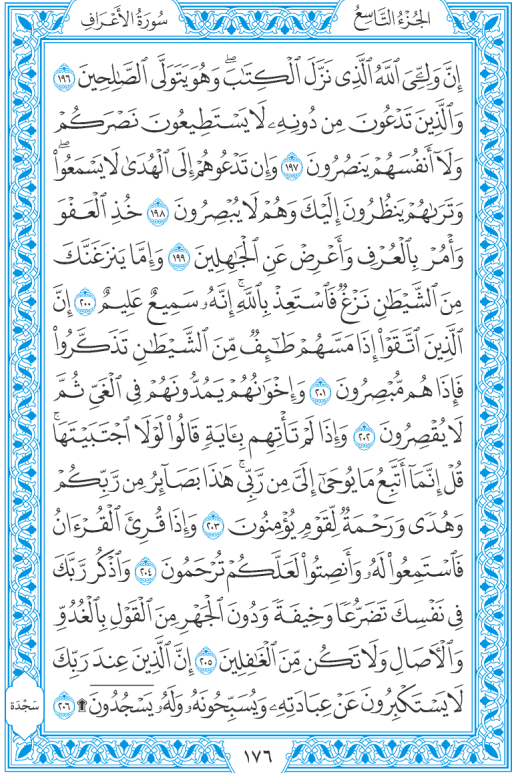 الجُزْءُ التَّاسِعُ
سُورَةُ الأَعْرَافِ
إِنَّ وَلِـِّۧيَ ٱللَّهُ ٱلَّذِي نَزَّلَ ٱلْكِتَٰبَۖ وَهُوَ يَتَوَلَّى ٱلصَّٰلِحِينَ ١٩٦
وَٱلَّذِينَ تَدْعُونَ مِن دُونِهِۦ لَا يَسْتَطِيعُونَ نَصْرَكُمْ
وَلَآ أَنفُسَهُمْ يَنصُرُونَ ١٩٧ وَإِن تَدْعُوهُمْ إِلَى ٱلْهُدَىٰ لَا يَسْمَعُوا۟ۖ
وَتَرَىٰهُمْ يَنظُرُونَ إِلَيْكَ وَهُمْ لَا يُبْصِرُونَ ١٩٨ خُذِ ٱلْعَفْوَ
وَأْمُرْ بِٱلْعُرْفِ وَأَعْرِضْ عَنِ ٱلْجَٰهِلِينَ ١٩٩ وَإِمَّا يَنزَغَنَّكَ
مِنَ ٱلشَّيْطَٰنِ نَزْغٌ فَٱسْتَعِذْ بِٱللَّهِۚ إِنَّهُۥ سَمِيعٌ عَلِيمٌ ٢٠٠ إِنَّ
ٱلَّذِينَ ٱتَّقَوْا۟ إِذَا مَسَّهُمْ طَٰٓئِفٌ مِّنَ ٱلشَّيْطَٰنِ تَذَكَّرُوا۟
فَإِذَا هُم مُّبْصِرُونَ ٢٠١ وَإِخْوَٰنُهُمْ يَمُدُّونَهُمْ فِي ٱلْغَيِّ ثُمَّ
لَا يُقْصِرُونَ ٢٠٢ وَإِذَا لَمْ تَأْتِهِم بِـَٔايَةٍ قَالُوا۟ لَوْلَا ٱجْتَبَيْتَهَاۚ
قُلْ إِنَّمَآ أَتَّبِعُ مَا يُوحَىٰٓ إِلَيَّ مِن رَّبِّيۚ هَٰذَا بَصَآئِرُ مِن رَّبِّكُمْ
وَهُدًى وَرَحْمَةٌ لِّقَوْمٍ يُؤْمِنُونَ ٢٠٣ وَإِذَا قُرِئَ ٱلْقُرْءَانُ
فَٱسْتَمِعُوا۟ لَهُۥ وَأَنصِتُوا۟ لَعَلَّكُمْ تُرْحَمُونَ ٢٠٤ وَٱذْكُر رَّبَّكَ
فِي نَفْسِكَ تَضَرُّعًا وَخِيفَةً وَدُونَ ٱلْجَهْرِ مِنَ ٱلْقَوْلِ بِٱلْغُدُوِّ
وَٱلْءَاصَالِ وَلَا تَكُن مِّنَ ٱلْغَٰفِلِينَ ٢٠٥ إِنَّ ٱلَّذِينَ عِندَ رَبِّكَ
لَا يَسْتَكْبِرُونَ عَنْ عِبَادَتِهِۦ وَيُسَبِّحُونَهُۥ وَلَهُۥ يَسْجُدُونَ۩ ٢٠٦
سَجْدَة
١٧٦